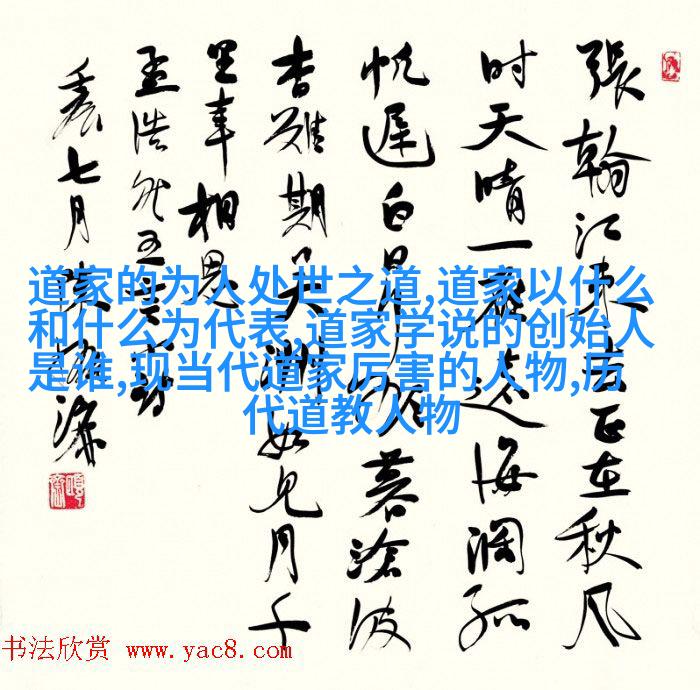 張翰江东去正在秋风
时天晴一雁远海阔孤
帆遲白日行欲暮滄波
杳難期吴洲如見月千
里幸相思
孟浩然五言
七月
道家的为人处世之道,道家以什么
和什么为代表,道家学说的创始人
是谁,现当代道家厉害的人物,历
代道教人物
书法欣赏 www.yac8.com